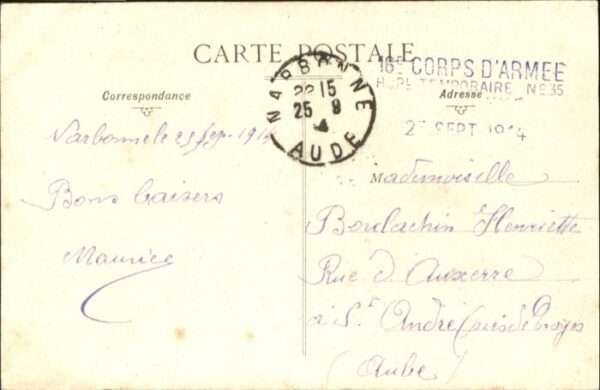 CARTE POSTALE
16E CORPS D'ARMEE
HOPL TEMPORAIRE No 35
SEPT 1914
NARBONNE
22 15
25 9
AUDE
Correspondance
Adresse
Narbonne le 25 sep. 1914
Bons baisers
Maurice
Mademoiselle
Bordachin Henriette
Rue d'Auxerre
à St André près de Troyes
(Aube)